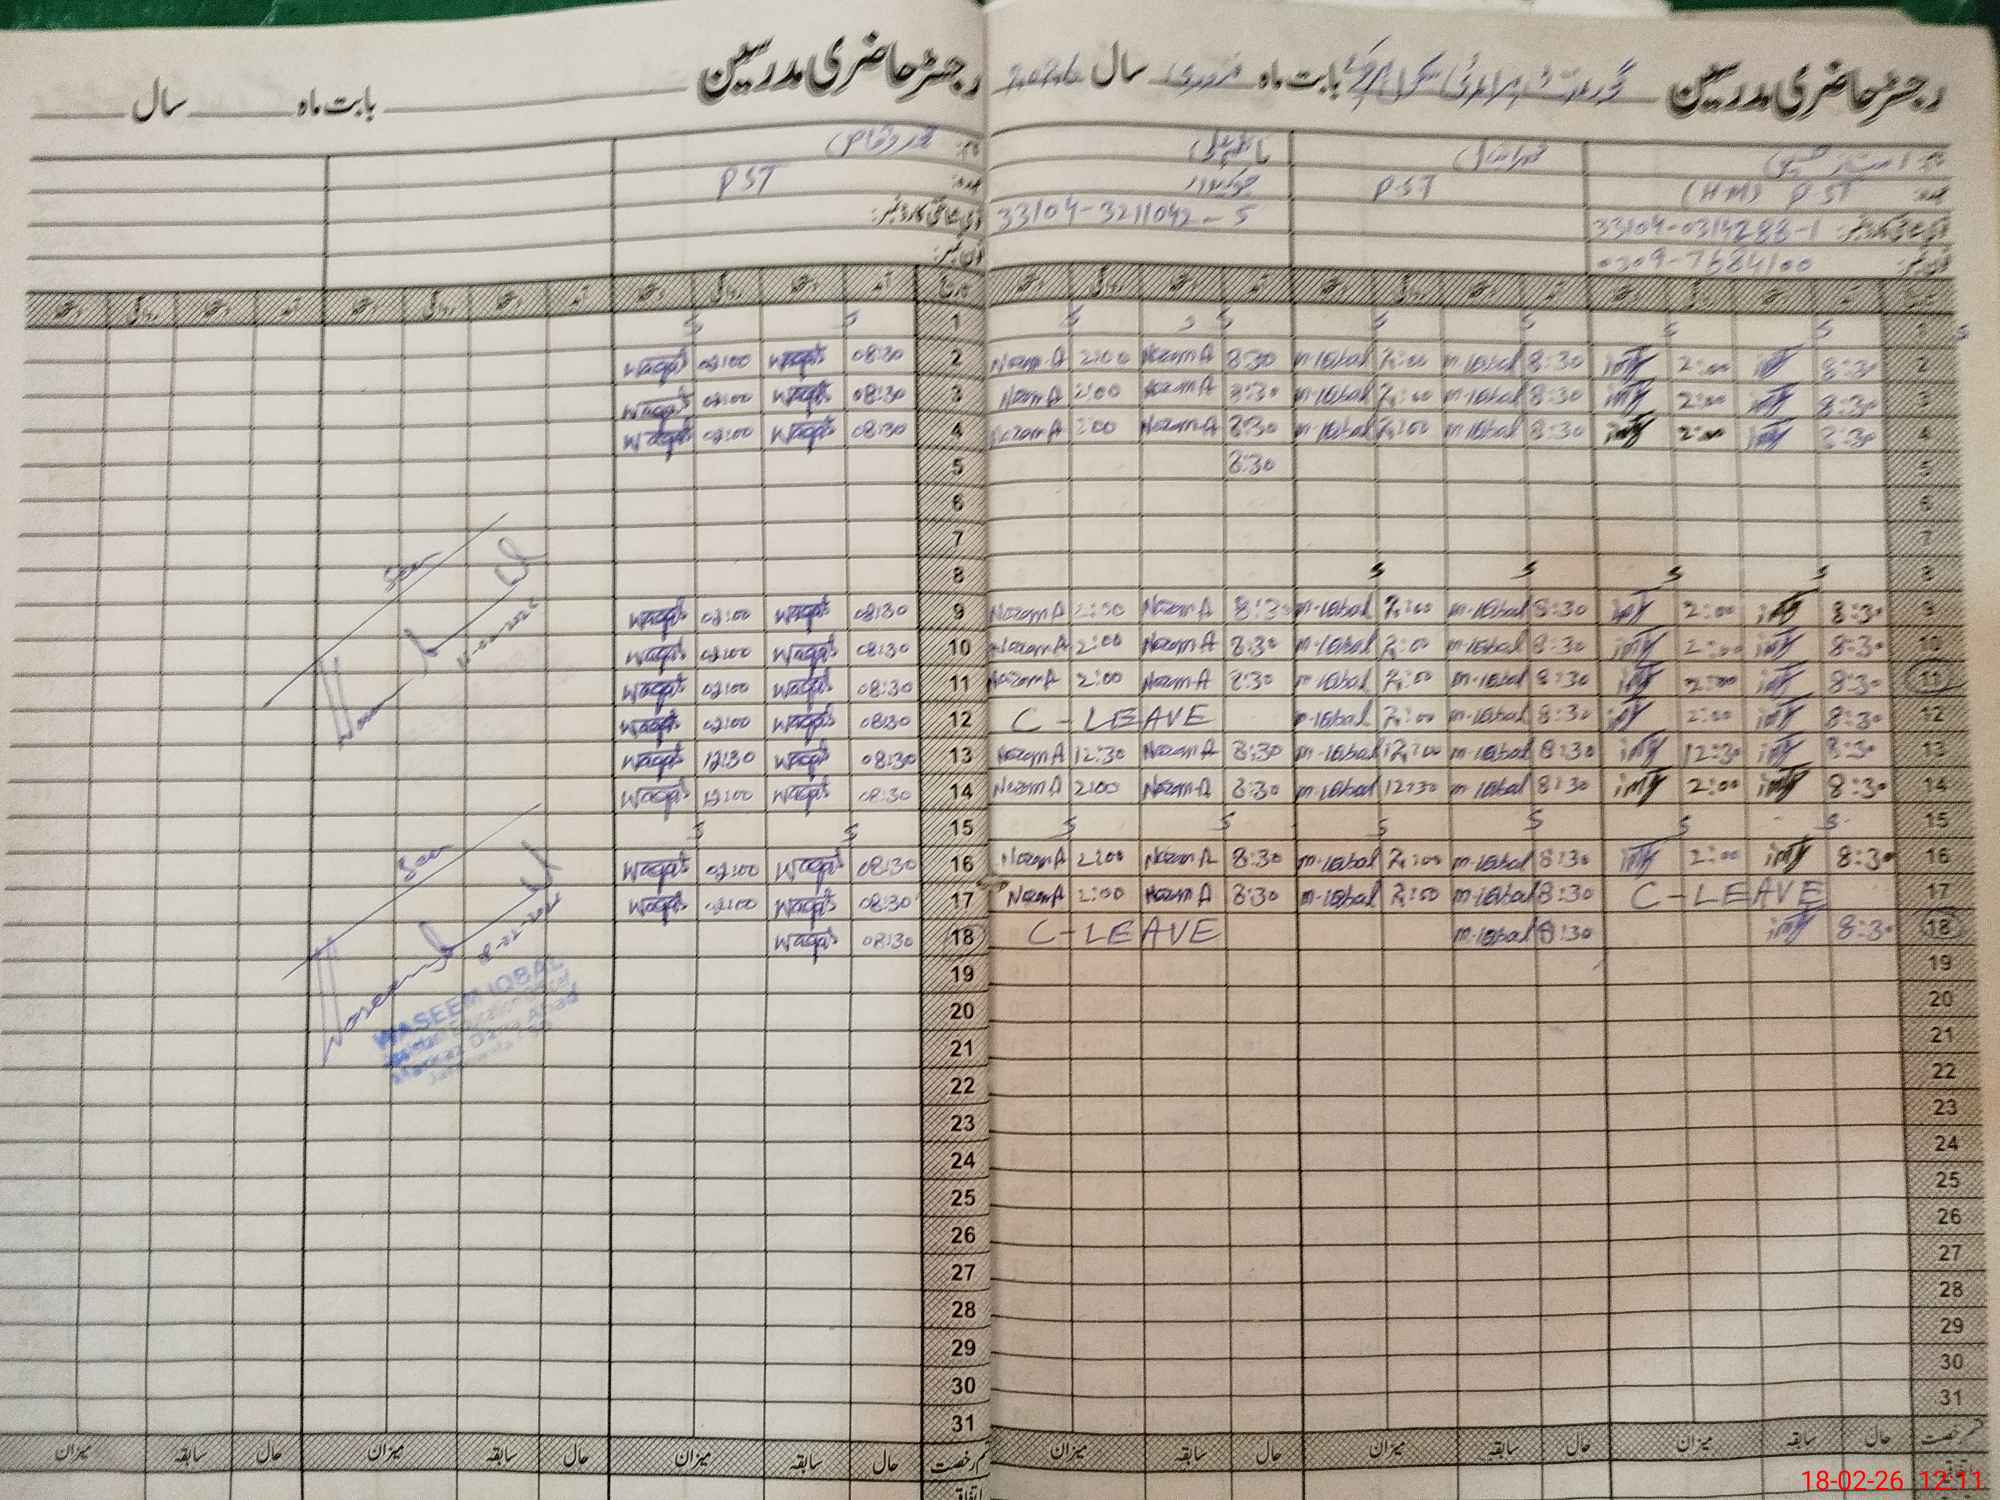 رجسٹر حاضری مدرسین گورنمنٹ پرائمری سکول بابت ماہ فروری سال 2026
نام:
عہدہ: PST (HM) PST چوکیدار
33104-0314288-1 33104-3211042-5
فون نمبر: 0309-7684100
تاریخ آمد دستخط روانگی دستخط آمد دستخط روانگی دستخط آمد دستخط روانگی دستخط
1 S S S S S S
2 8:30 2:00 8:30 m-iqbal 2:00 m-iqbal 8:30 NazamA 2:00 NazamA
3 8:30 2:00 8:30 m-iqbal 2:00 m-iqbal 8:30 NazamA 2:00 NazamA
4 8:30 2:00 8:30 m-iqbal 2:00 m-iqbal 8:30 NazamA 2:00 NazamA
5 8:30
6
7
8 S S S S
9 8:30 2:00 8:30 m-iqbal 2:00 m-iqbal 8:30 NazamA 2:00 NazamA
10 8:30 2:00 8:30 m-iqbal 2:00 m-iqbal 8:30 NazamA 2:00 NazamA
11 8:30 2:00 8:30 m-iqbal 2:00 m-iqbal 8:30 NazamA 2:00 NazamA
12 8:30 2:00 8:30 m-iqbal 2:00 m-iqbal C-LEAVE
13 8:30 12:30 8:30 m-iqbal 12:00 m-iqbal 8:30 NazamA 12:30 NazamA
14 8:30 2:00 8:30 m-iqbal 12:30 m-iqbal 8:30 NazamA 2:00 NazamA
15 S S S S S S
16 8:30 2:00 8:30 m-iqbal 2:00 m-iqbal 8:30 NazamA 2:00 NazamA
17 C-LEAVE 8:30 m-iqbal 2:00 m-iqbal 8:30 NazamA 2:00 NazamA
18 8:30 8:30 m-iqbal C-LEAVE
19
20
21
22
23
24
25
26
27
28
29
30
31
حال سابقہ میزان حال سابقہ میزان حال سابقہ میزان
رجسٹر حاضری مدرسین بابت ماہ سال
نام: محمد وقاص
عہدہ: PST
قومی شناختی کارڈ نمبر:
فون نمبر:
تاریخ آمد دستخط روانگی دستخط آمد دستخط روانگی دستخط آمد دستخط روانگی دستخط
1 S S
2 08:30 Waqas 02:00 Waqas
3 08:30 Waqas 02:00 Waqas
4 08:30 Waqas 02:00 Waqas
5
6
7
8
9 08:30 Waqas 02:00 Waqas
10 08:30 Waqas 02:00 Waqas
11 08:30 Waqas 02:00 Waqas
12 08:30 Waqas 02:00 Waqas
13 08:30 Waqas 12:30 Waqas
14 08:30 Waqas 12:00 Waqas
15 S S
16 08:30 Waqas 02:00 Waqas
17 08:30 Waqas 02:00 Waqas
18 08:30 Waqas
19
20
21
22
23
24
25
26
27
28
29
30
31
قسم رخصت حال سابقہ میزان حال سابقہ میزان حال سابقہ میزان
اتفاقیہ
Seen
Seen
WASEEM IQBAL
18-02-26 12:11